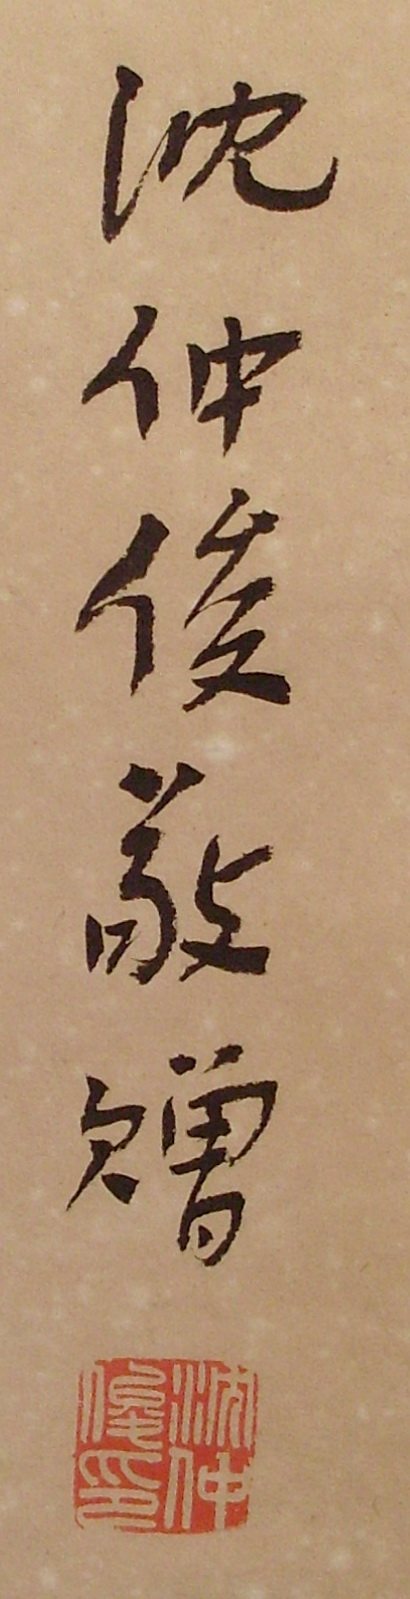 沈仲俊敬赠
沈仲俊印